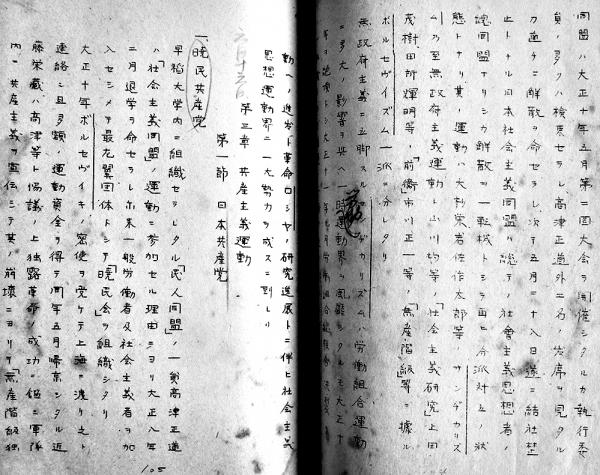 同盟ハ大正十年五月第二回大会ヲ開催シタルカ執行委
員ノ多クハ検束セラレ高津正道外二名ノ党席ヲ見タル
力直チニ解散ヲ命セラレ次テ五月二十八日遂ニ結社禁
止トナル日本社会主義同盟ハ総テ社會主義思想者ノ
同盟ナリシカ解散ヲ一転機トシテ再ヒ分派対立ノ状
態トナリ其ノ運動ハ大杉栄岩佐作太郎等ノサンヂカリズ
ム乃至無政府主義運動ト山川均等ノ「社会主義研究」上田
茂樹田所輝明等ノ「前衛」市川正一等ノ「無産階級」等ニ據ル
ボルセヴイズムノ一派ニ分レタリ
無政府主義ニ立脚スルサンヂカリズムハ労働組合運動
ニ多大ノ影響ヲ共ヘ一時運動界ヲ風靡シタルモ大正十
動ヘノ進歩ト革命ロシヤノ研究進展トニ伴ヒ社会主義
思想運動界ニ一大勢力ヲ成スニ到レリ
六月十六日
第三章 共産主義運動
第一節 日本共産党
一、暁民共産党
早稲大学内ニ組織セラレタル「民人同盟」ノ一員高津正道
ハ「社会主義同盟」ノ運動ニ参加セル理由ニヨリ大正八年
二月退学ヲ命セラレ爾来一般労働者及社会主義者ヲ加
入セシメ最左翼団体トシテ「暁民会」ヲ組織シタリ
大正十年ボルセヴイキノ密使ヲ受ケテ上海ニ渡リ之ト
連絡シ且多額ノ運動資金ヲ得テ同年五月帰京シタル近
藤栄蔵ハ高津等ト協議ノ上独露革命ノ成功ニ鑑ミ軍隊
内ニ共産主義ヲ宣伝シテ其ノ崩壊ニヨリテ「無産階級独
105